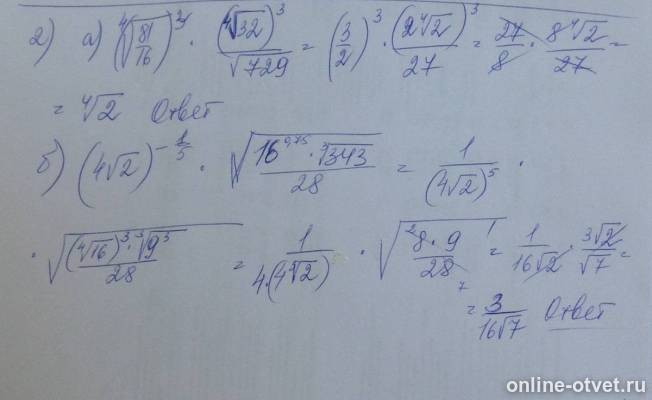 2) а) (∜(81/16))³ · (∜32)³/√729 = (3/2)³ · (2∜2)³/27 = 27/8 · 8∜2/27 =
= ∜2 Ответ
б) (4√2)^(-1/5) · √(16^(0,75) · ∛343/28) = 1/(4√2)⁵ ·
· √((∜16)³ · ∛9³/28) = 1/(4·(4√2)) · √(8·9/28) = 1/(16√2) · 3√2/√7 =
= 3/(16√7) Ответ
online-otvet.ru